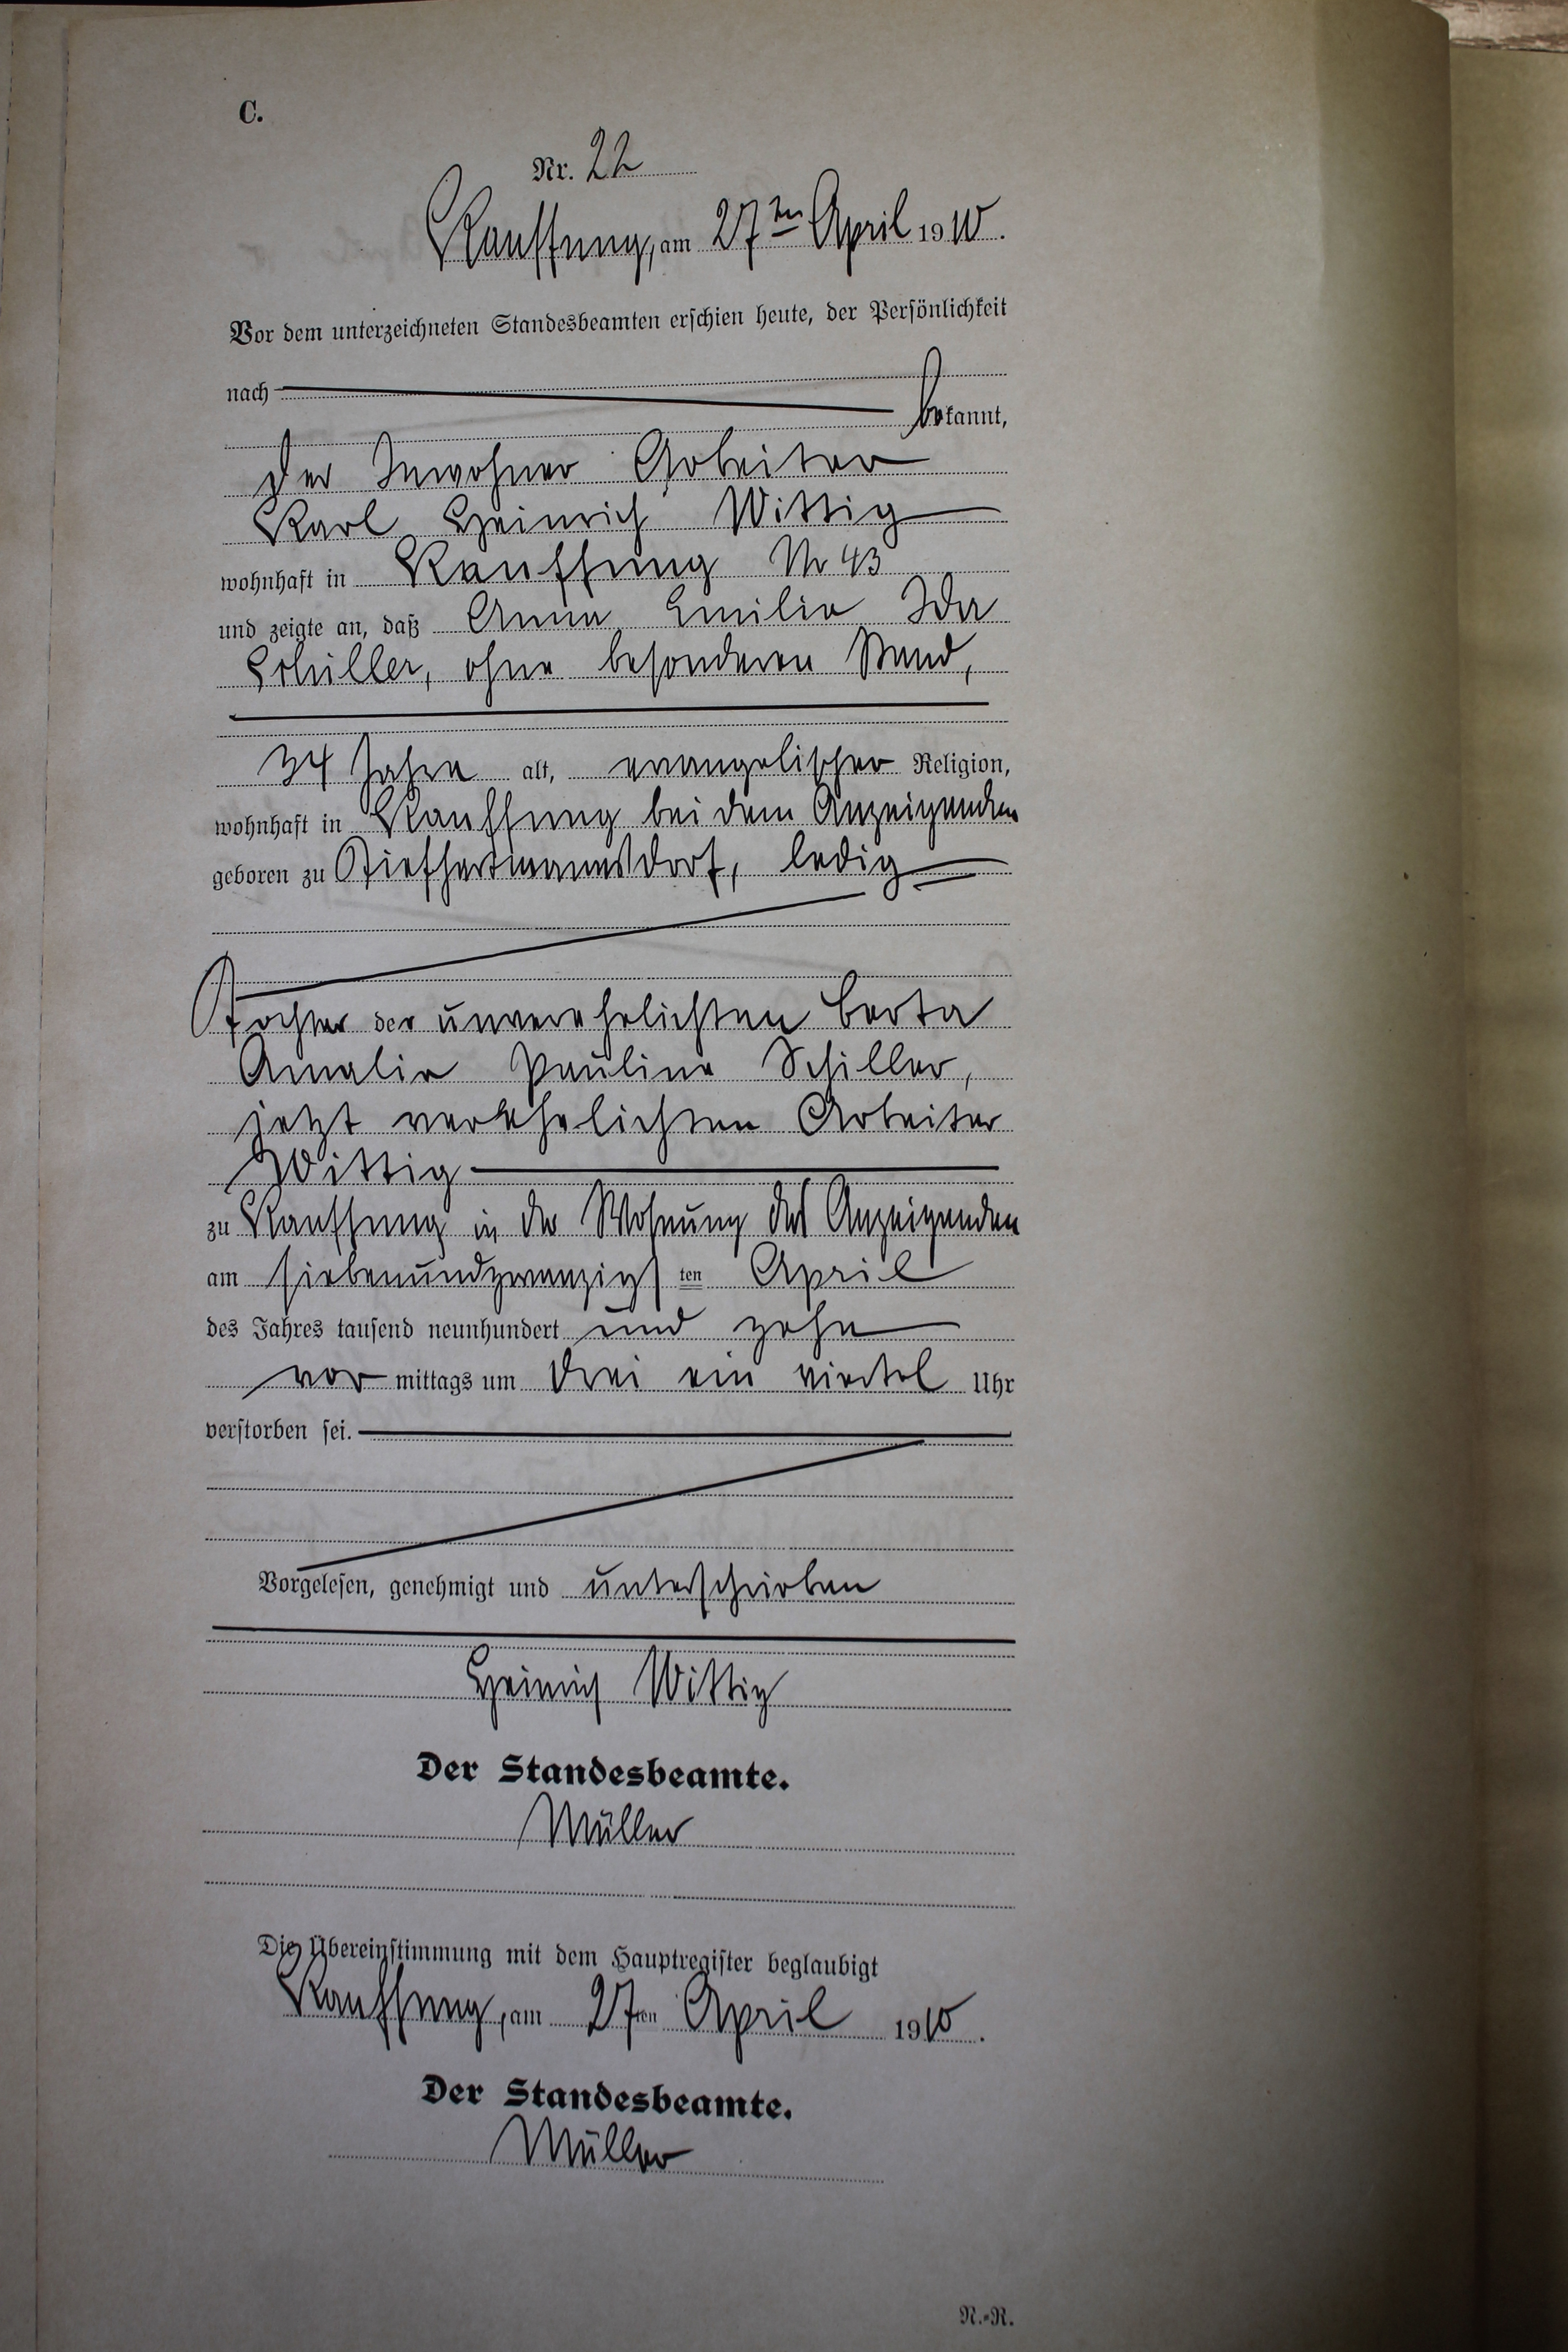 C.
Nr. 22
Kauffung, am 27ten April 1910.
Vor dem unterzeichneten Standesbeamten erschien heute, der Persönlichkeit
nach
bekannt,
der Inwohner Arbeiter
Karl Heinrich Wittig
wohnhaft in Kauffung Nr 43
und zeigte an, daß Anna Emilie Ida
Schiller, ohne besonderen Stand,
34 Jahre alt, evangelischer Religion,
wohnhaft in Kauffung bei dem Anzeigenden
geboren zu Tiefhartmannsdorf, ledig
Tochter der unverehelichten Berta
Amalie Pauline Schiller,
jetzt verehelichten Arbeiter
Wittig
zu Kauffung in der Wohnung des Anzeigenden
am siebenundzwanzigsten April
des Jahres tausend neunhundert und zehn
vormittags um drei ein viertel Uhr
verstorben sei.
Vorgelesen, genehmigt und unterschrieben
Heinrich Wittig
Der Standesbeamte.
Müller
Die Übereinstimmung mit dem Hauptregister beglaubigt
Kauffung, am 27ten April 1910.
Der Standesbeamte.
Müller
R.-R.